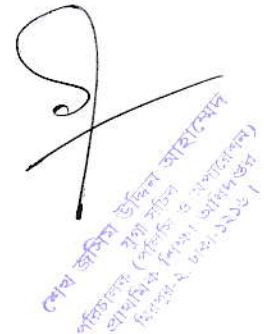 শেখ জসিম উদ্দিন আহাম্মেদ
যুগ্ম সচিব
পরিচালক (পলিসি ও অপারেশন)
প্রাথমিক শিক্ষা অধিদপ্তর
মিরপুর-২, ঢাকা-১২১৬।